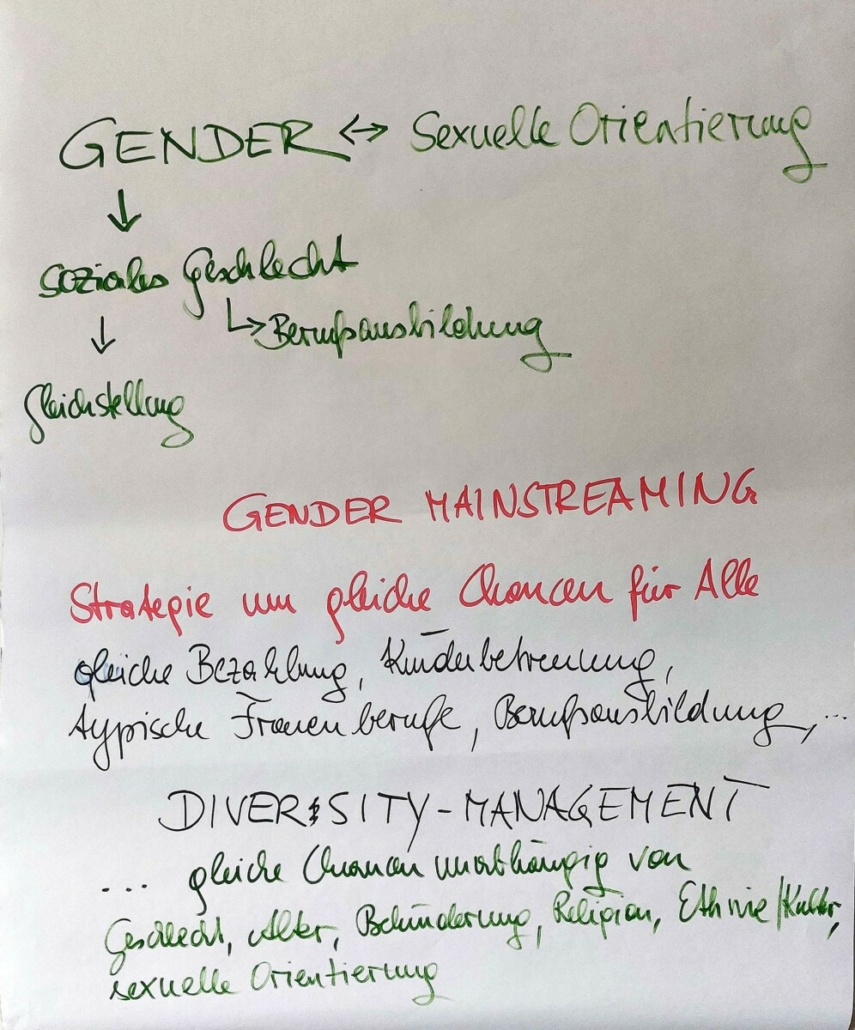 GENDER ↔ Sexuelle Orientierung
↓
soziales Geschlecht
↓ ↳ Berufsausbildung
Gleichstellung
GENDER MAINSTREAMING
Strategie um gleiche Chancen für Alle
gleiche Bezahlung, Kinderbetreuung,
typische Frauenberufe, Berufsausbildung, ...
DIVERSITY-MANAGEMENT
... gleiche Chancen unabhängig von
Geschlecht, Alter, Behinderung, Religion, Ethnie/Kultur,
sexuelle Orientierung